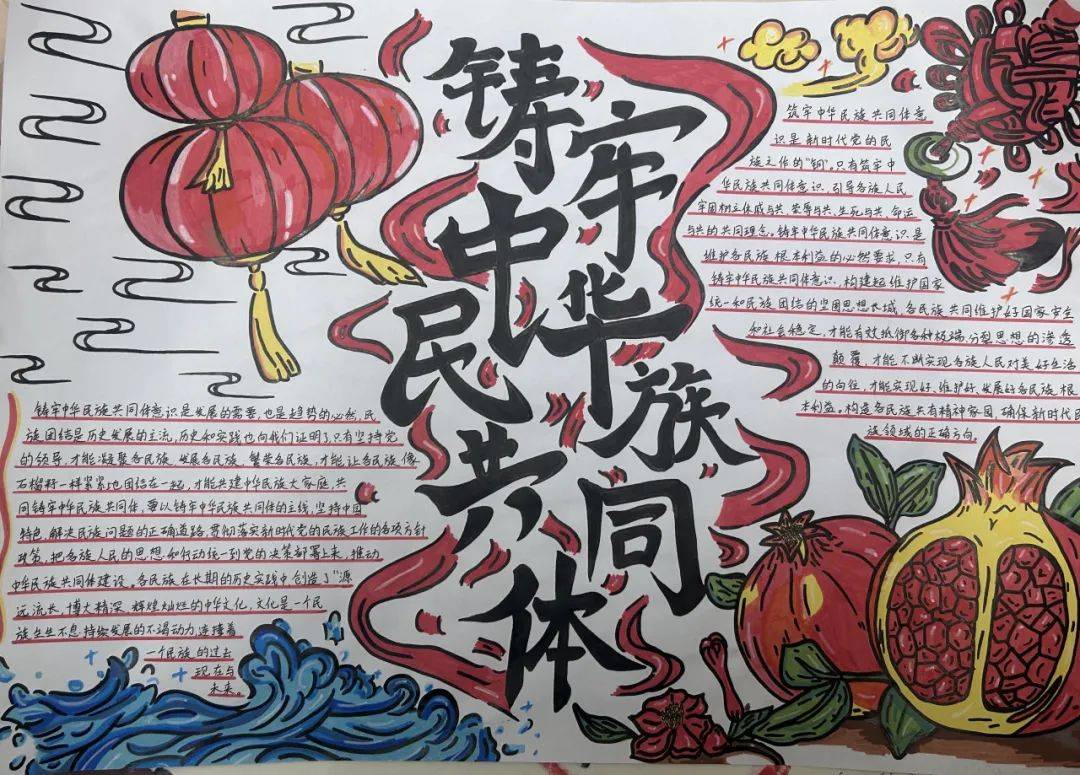 铸牢
中华
民族
共同
体
筑牢中华民族共同体意
识是新时代党的民
族工作的"钢",只有筑牢中
华民族共同体意识,引导各族人民
牢固树立休戚与共、荣辱与共、生死与共、命运
与共的共同理念。铸牢中华民族共同体意识是
维护各民族根本利益的必然要求,只有
铸牢中华民族共同体意识,构建起维护国家
统一和民族团结的坚固思想长城,各民族共同维护好国家安全
和社会稳定,才能有效抵御各种极端、分裂思想的渗透
颠覆,才能不断实现各族人民对美好生活
的向往,才能实现好、维护好、发展好各民族根
本利益,构造各民族共有精神家园,确保新时代民
族领域的正确方向。
铸牢中华民族共同体意识是发展的需要,也是趋势的必然,民
族团结是历史发展的主流,历史和实践也向我们证明了,只有坚持党
的领导,才能凝聚各民族、发展各民族、繁荣各民族,才能让各民族像
石榴籽一样紧紧地团结在一起,才能共建中华民族大家庭共
同铸牢中华民族共同体,要以铸牢中华民族共同体的主线,坚持中国
特色解决民族问题的正确道路,贯彻落实新时代党的民族工作的各项方针
政策,把各族人民的思想和行动统一到党的决策部署上来,推动
中华民族共同体建设。各民族在长期的历史实践中创造了"源
远流长、博大精深、辉煌灿烂的中华文化,文化是一个民
族生生不息持续发展的不竭动力,连接着
一个民族的过去
现在与
未来。